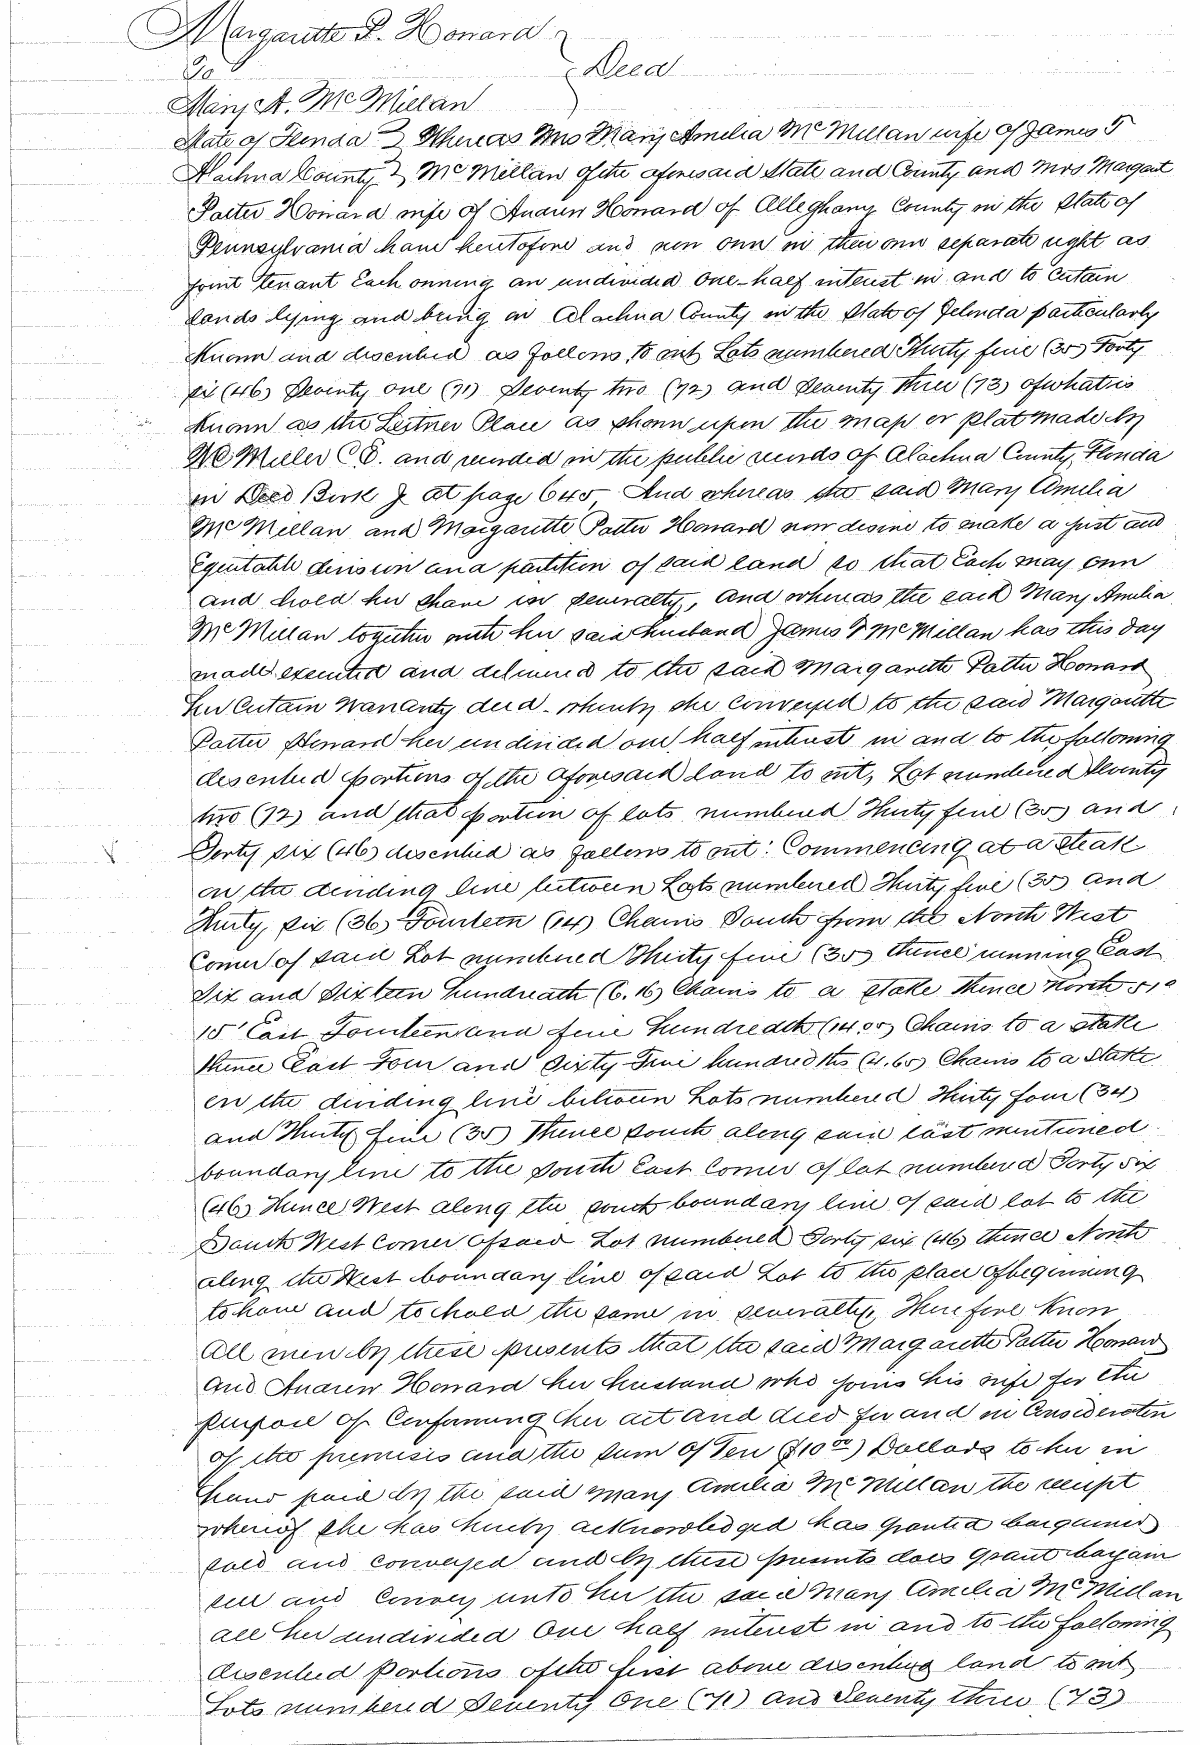 Margarette P. Howard
To } Deed
Mary A. McMillan
State of Florida } Whereas Mrs Mary Amelia McMillan wife of James T
Alachua County } McMillan of the aforesaid State and County and Mrs Margaret
Patter Howard wife of Andrew Howard of Alleghany County in the State of
Pennsylvania have heretofore and now own in their own separate right as
joint tenant Each owning an undivided one-half interest in and to certain
lands lying and being in Alachua County in the State of Florida particularly
Known and described as follows, to wit, Lots numbered Thirty five (35) Forty
six (46) Seventy one (71) Seventy two (72) and Seventy three (73) of what is
Known as the Leitner Place as shown upon the map or plat made by
Miller C.E. and recorded in the public records of Alachua County, Florida
in Deed Book J at page 645, And whereas the said Mary Amelia
McMillan and Margarette Patter Howard now desire to make a just and
Equitable division and partition of said land so that Each may own
and hold her share in severalty, and whereas the said Mary Amelia
McMillan together with her said husband James T McMillan has this day
made executed and delivered to the said Margarette Patter Howard
her Certain Warranty deed - whereby she conveyed to the said Margarette
Patter Howard her undivided one half interest in and to the following
described portions of the aforesaid land to wit, Lot numbered Seventy
two (72) and that portion of lots numbered Thirty five (35) and
Forty six (46) described as follows to wit: Commencing at a steak
on the dividing line between Lots numbered Thirty five (35) and
Thirty six (36) Fourteen (14) Chains South from the North West
Corner of said Lot numbered Thirty five (35) thence running East
Six and Sixteen hundreath (6.16) Chains to a stake thence North 51°
15' East Fourteen and five hundredth (14.05) Chains to a stake
thence East Four and Sixty Five hundredths (4.65) Chains to a Stake
on the dividing line between Lots numbered Thirty four (34)
and Thirty five (35) thence south along said last mentioned
boundary line to the South East Corner of lot numbered Forty six
(46) thence West along the south boundary line of said lot to the
South West Corner of said Lot numbered Forty six (46) thence North
along the West boundary line of said Lot to the place of beginning
to have and to hold the same in severalty, Therefore Know
All men by these presents that the said Margarette Patter Howard
and Andrew Howard her husband who joins his wife for the
purpose of Confirming her act and deed for and in Consideration
of the premises and the sum of Ten ($10.00) Dollars to her in
hand paid by the said Mary Amelia McMillan the receipt
whereof she has hereby acknowledged has granted bargained
sold and conveyed and by these presents does grant bargain
sell and Convey unto her the said Mary Amelia McMillan
all her undivided One half interest in and to the following
described portions of the first above described land to wit
Lots numbered Seventy One (71) and Seventy three (73)